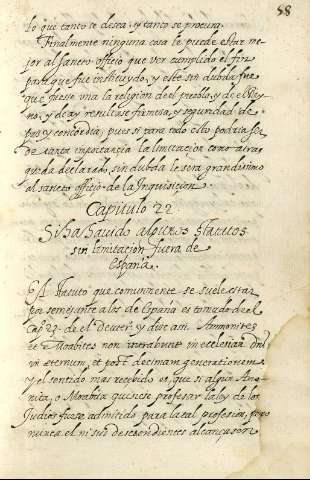 58
lo que tanto se desea, y tanto se procura.
Finalmente ninguna cosa le puede estar me-
jor al sancto officio que ver cumplido el fin
para que fue instituydo, y este sin dubda fue
que fuese una la religion de el pueblo, y de el Rey-
no, y de ay resultase firmeza, y seguridad de
paz y concordia, pues si para todo esto podria ser
de tanta importancia la limitacion como atras
queda declarado, sin dubda le sera grandissimo
al sancto officio de la Inquisicion.
Capitulo 22
Si ha havido algunos statutos
sin limitacion fuera de
España.
El statuto que comunmente se suele
por semejante a los de España es tomado de el
cap. 23 de el Deuter. y dice asi. Ammonites
et Moabites non intrabunt in ecclesiam Dni
in æternum, et post decimam generationem
y el sentido mas recebido es, que si algun Amo-
nita, o Moabita quisiese profesar la ley de los
Judios fuese admitido para la tal profesion, pero
nunca el ni sus descendientes alcançasen